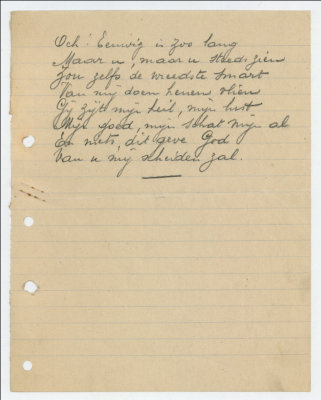 Och! Eeuwig is zoo lang
Maar u, maar u steeds zien
Zou zelfs de wreedste smart
Van mij doen henen vlien
Gij zijt mijn heil, mijn lust
Mijn goed, mijn schat mijn al
En niets, dit geve God
Van u mij scheiden zal.